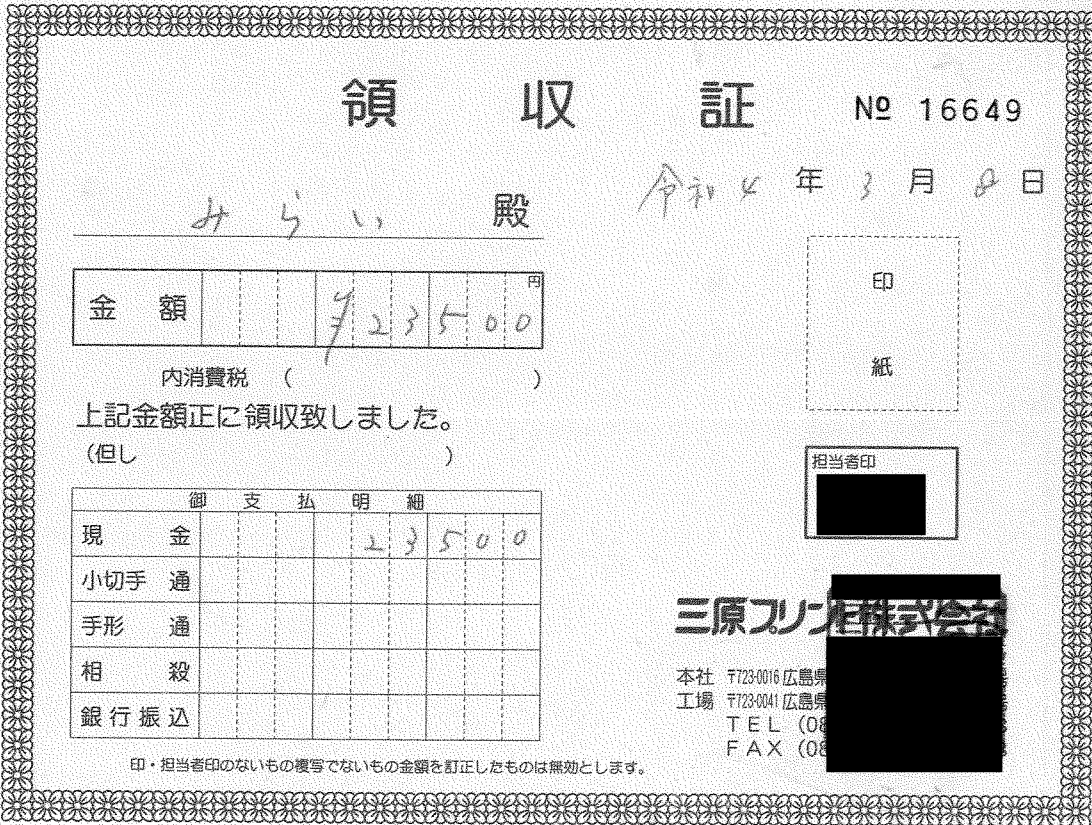 領収証 № 16649
令和4年3月8日
みらい 殿
金額 ¥23500 円
内消費税 ( )
上記金額正に領収致しました。
(但し )
印
紙
担当者印
御支払明細
現金 23500
小切手 通
手形 通
相殺
銀行振込
三原プリント株式会社
本社 〒723-0016 広島県
工場 〒723-0041 広島県
TEL (08
FAX (08
印・担当者印のないもの複写でないもの金額を訂正したものは無効とします。